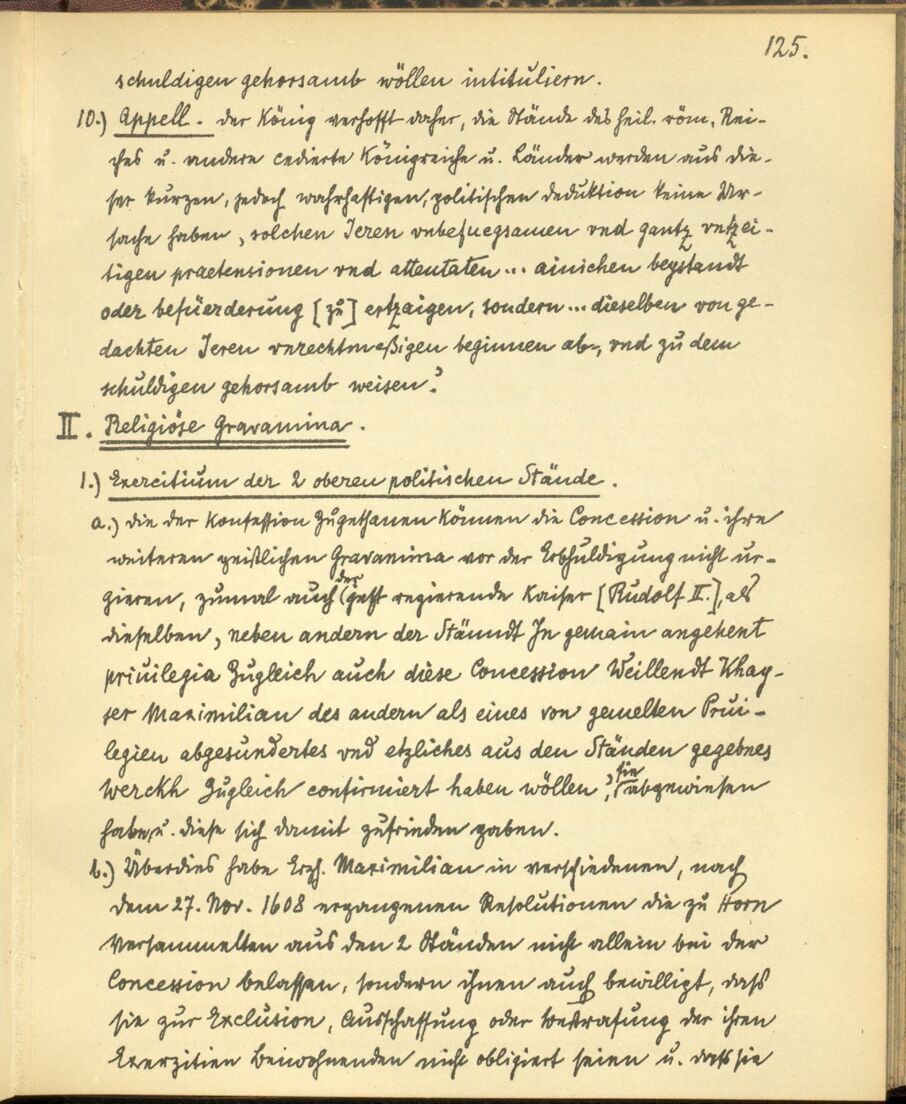 125.
schuldigen gehorsamb wöllen intitulirn.
10.) Appell. Der König verhofft daher, die Stände des heil. röm. Rei-
ches u. andere cedierte Königreiche u. Länder werden aus die-
ser kurzen, jedoch wahrhaftigen, politischen Deduktion keine Ur-
sache haben, solchen Jeren unbefuegsamen vnd gantz vnzei-
tigen praetensionen vnd attentaten... ainichen beystandt
oder befüerderung [zu] ertzaigen, sondern... dieselben von ge-
dachten Jeren vnrechtmeßigen beginnen ab-, vnd zu dem
schuldigen gehorsamb weisen.'
II. Religiöse Gravamina.
1.) Exercitium der 2 oberen politischen Stände.
a.) Die der Konfession Zugethanen können die Concession u. ihre
weiteren geistlichen Gravamina vor der Erbhuldigung nicht ur-
gieren, zumal auch der jetzt regierende Kaiser [Rudolf II.], als
dieselben, neben andern der Stänndt In gemain angehent
priuilegia Zugleich auch diese Concession Weillendt Khay-
ser Maximilian des andern als eines von gemelten Priui-
legien abgesundertes vnd etzliches aus den Ständen gegebnes
Werckh Zugleich confirmiert haben wöllen', sie abgewiesen
habe, u. diese sich damit zufrieden gaben.
b.) Überdies habe Erzh. Maximilian in verschiedenen, nach
dem 27. Nov. 1608 ergangenen Resolutionen die zu Horn
Versammelten aus den 2 Ständen nicht allein bei der
Concession belassen, sondern ihnen auch bewilligt, dass
sie zur Exclusion, Ausschaffung oder Bestrafung der ihren
Exerzitien Beiwohnenden nicht obligiert seien u. dass sie